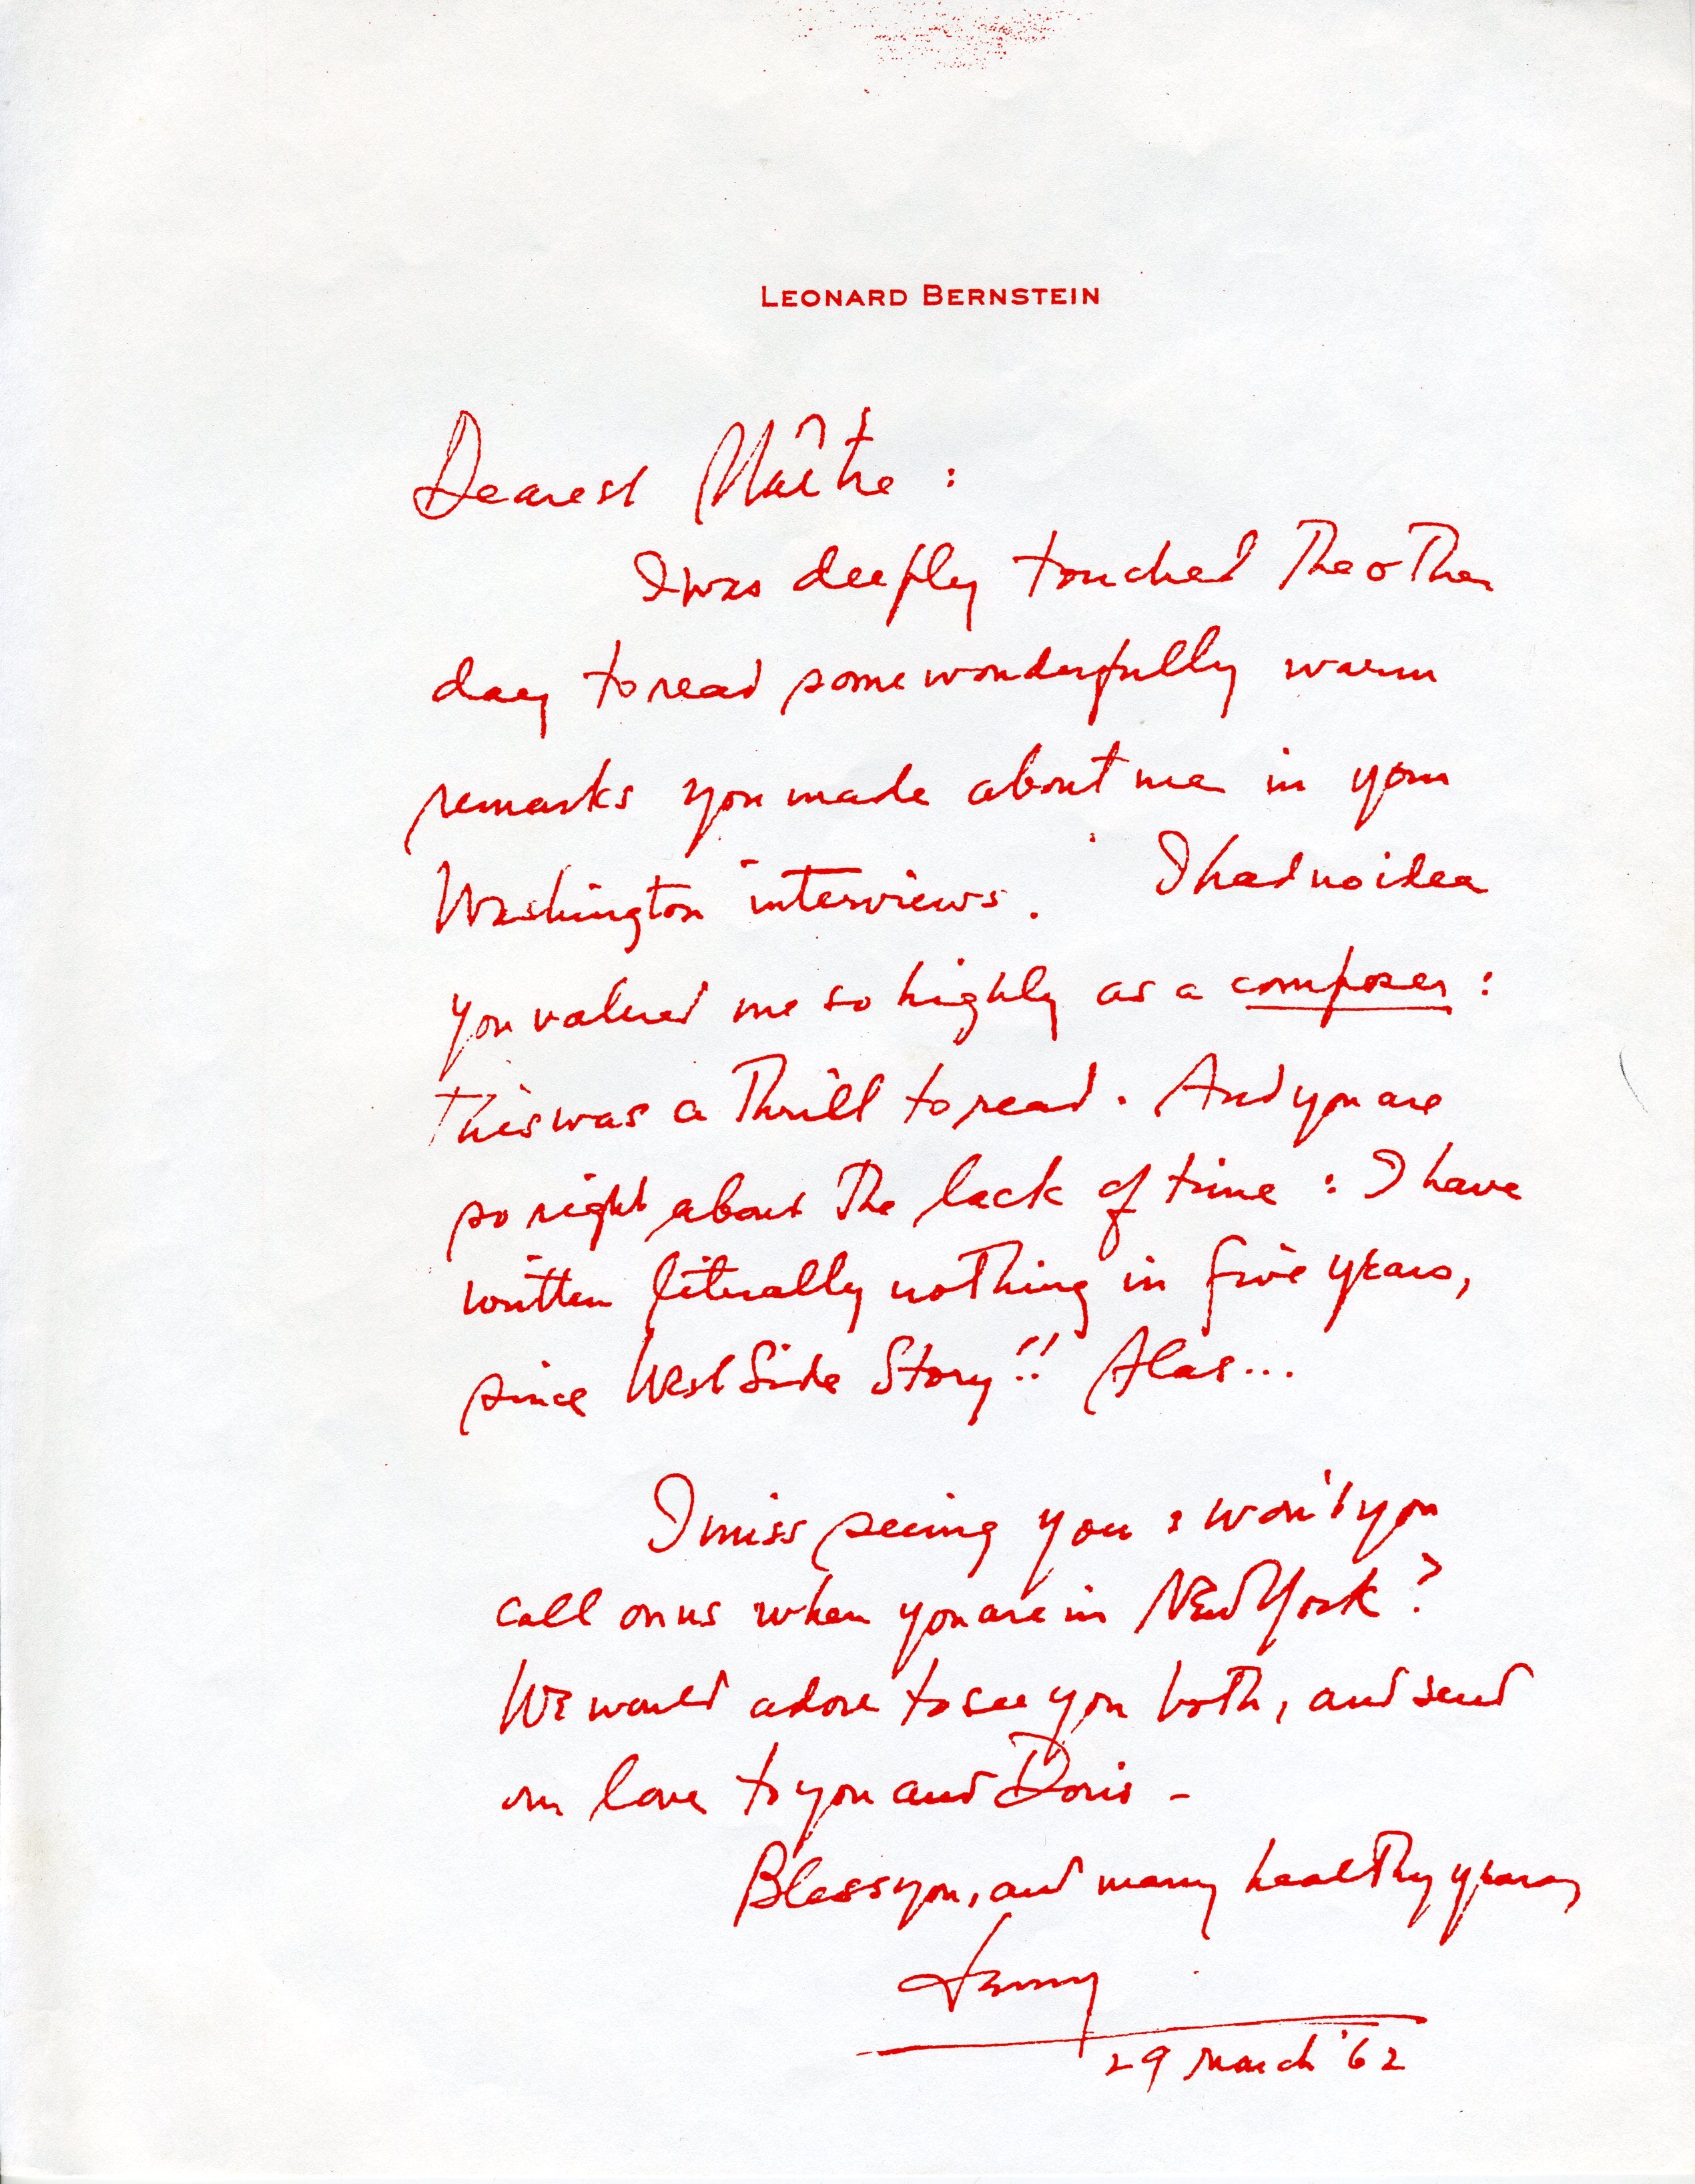 LEONARD BERNSTEIN
Dearest Maître :
I was deeply touched the other
day to read some wonderfully warm
remarks you made about me in your
Washington interviews. I had no idea
you valued me so highly as a composer :
this was a thrill to read. And you are
so right about the lack of time : I have
written literally nothing in five years,
since West Side Story!! Alas...
I miss seeing you : won't you
call on us when you are in New York?
We would adore to see you both, and send
our love to you and Doris -
Bless you, and many healthy years,
Lenny
29 March '62